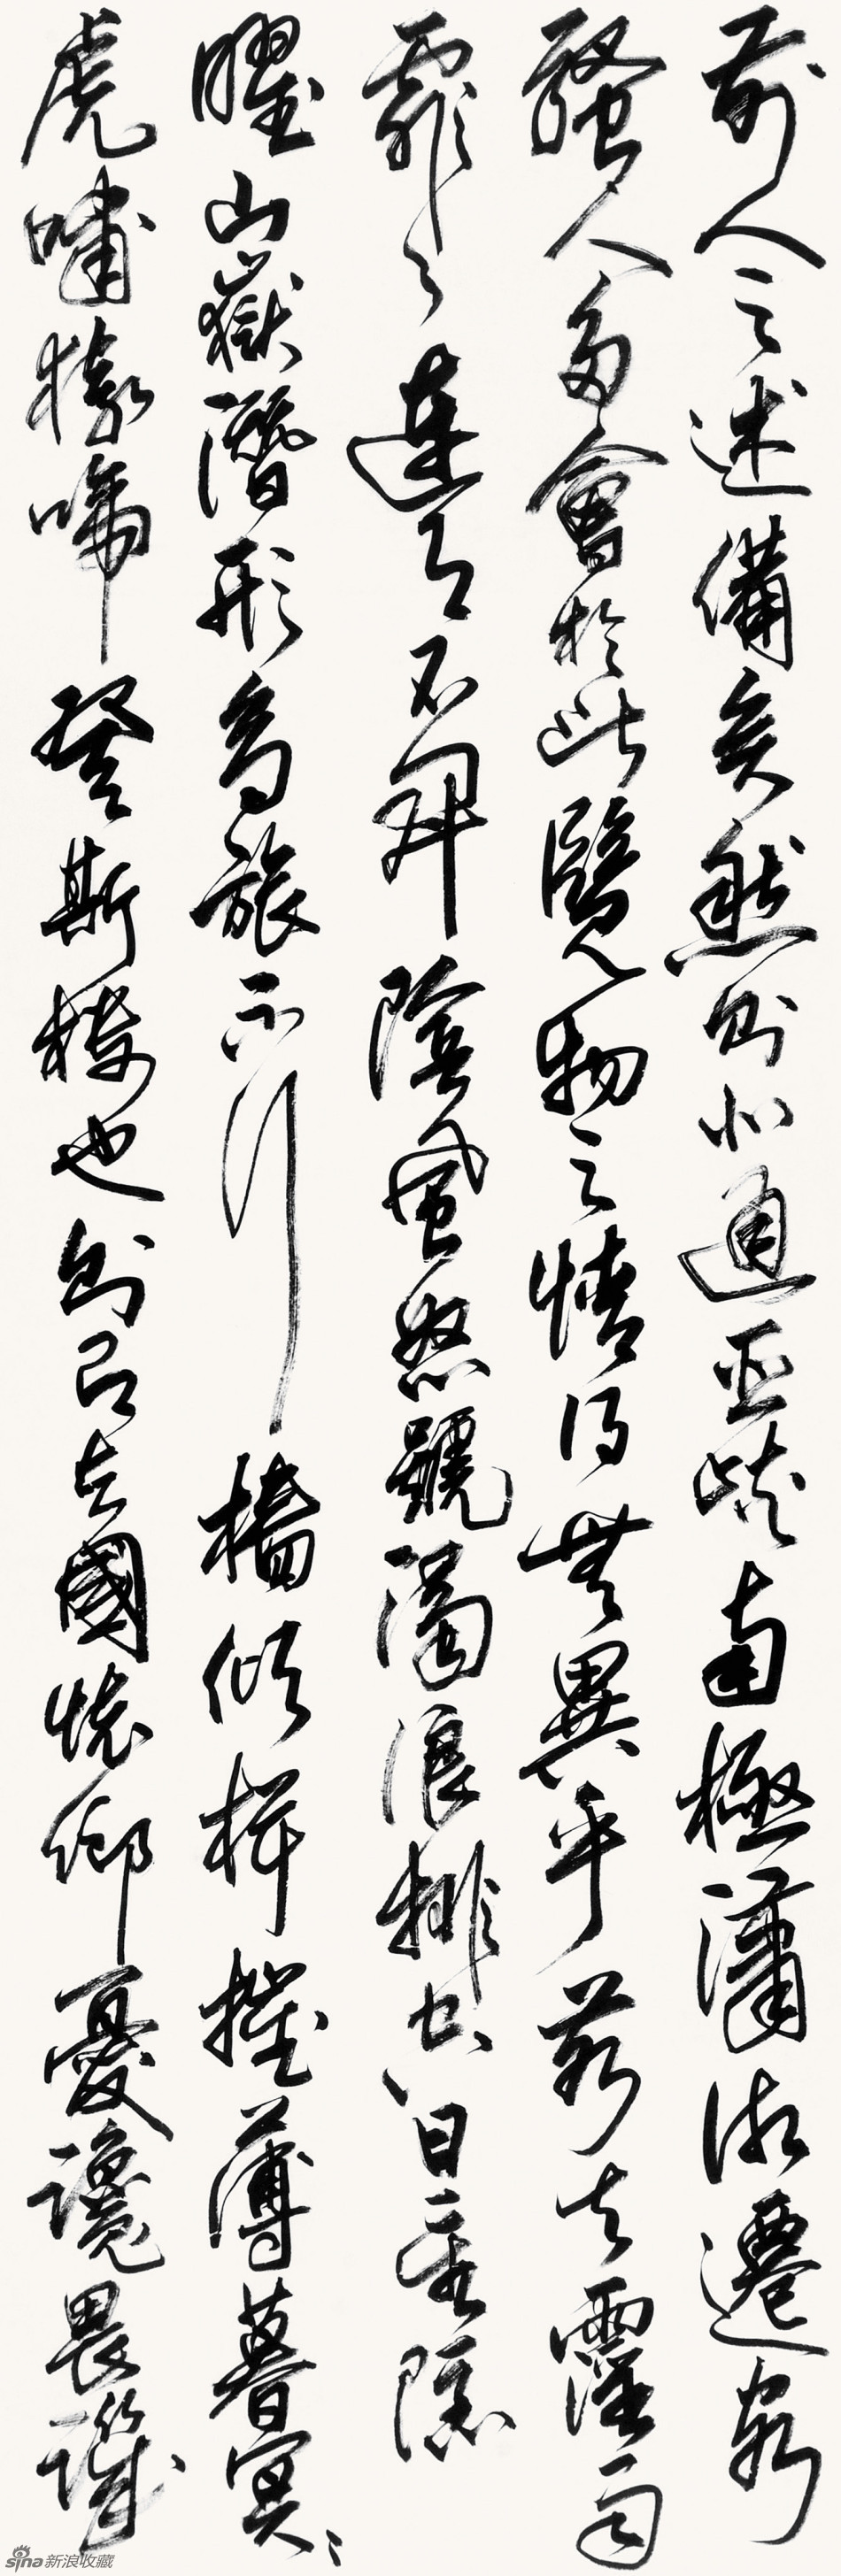 前人之述備矣然則北通巫峽南極瀟湘遷客
騷人多會於此覽物之情得無異乎若夫霪雨
霏々連月不開陰風怒號濁浪排空日星隱
曜山嶽潛形商旅不行檣傾楫摧薄暮冥々
虎嘯猿啼登斯樓也則有去國懷鄉憂讒畏譏
sina新浪收藏